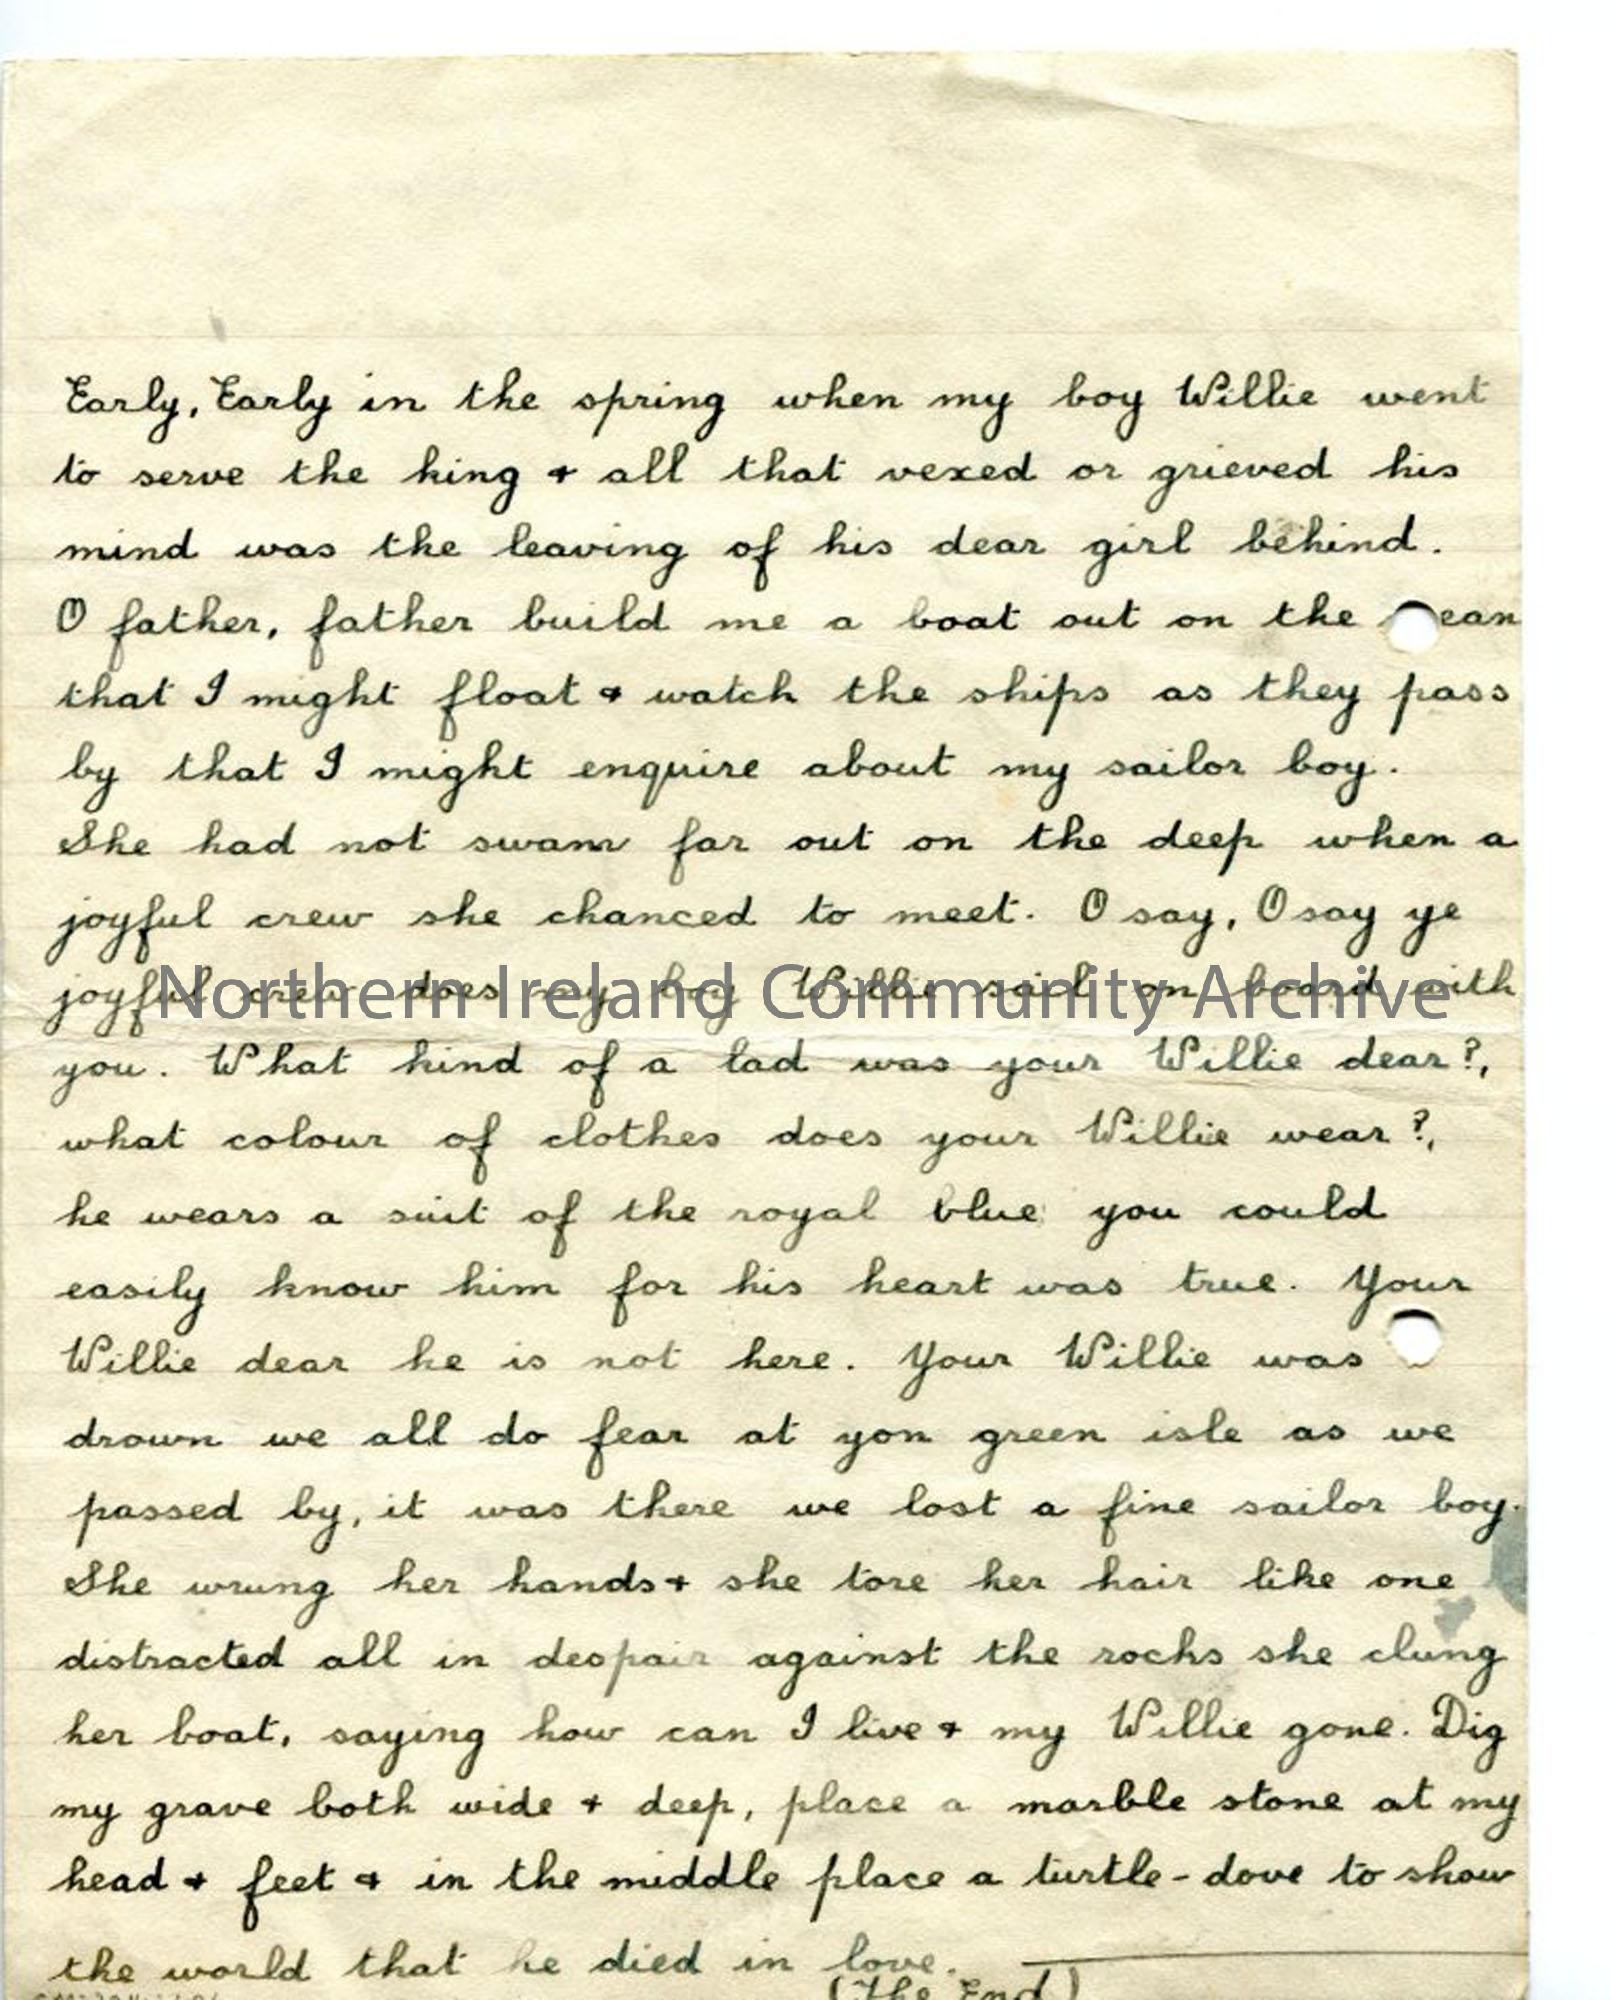 Early, Early in the spring when my boy Willie went
to serve the king & all that vexed or grieved his
mind was the leaving of his dear girl behind.
O father, father build me a boat out on the ean
that I might float & watch the ships as they pass
by that I might enquire about my sailor boy.
She had not swam far out on the deep when a
joyful crew she chanced to meet. O say, O say ye
joyful crew does my boy Willie sail on board with
Northern Ireland Community Archive
you. What kind of a lad was your Willie dear?,
what colour of clothes does your Willie wear?,
he wears a suit of the royal blue you could
easily know him for his heart was true. Your
Willie dear he is not here. Your Willie was
drown we all do fear at yon green isle as we
passed by, it was there we lost a fine sailor boy.
She wrung her hands & she tore her hair like one
distracted all in despair against the rocks she clung
her boat, saying how can I live & my Willie gone. Dig
my grave both wide & deep, place a marble stone at my
head & feet & in the middle place a turtle-dove to show
the world that he died in love.
(The End)